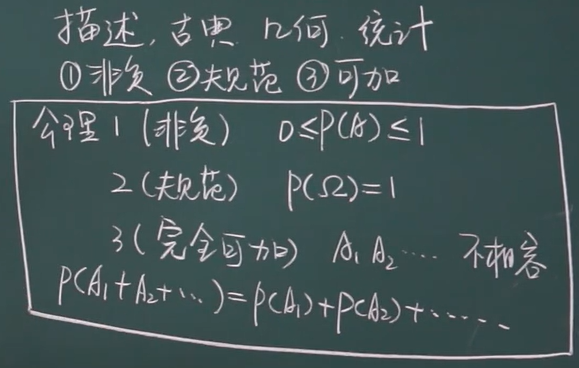 描述, 古典 几何. 统计
①非负 ②规范 ③可加
公理 1 (非负) 0≤P(A)≤1
2 (规范) P(Ω)=1
3 (完全可加) A₁ A₂ ···· 不相容
P(A₁+A₂+···)=P(A₁)+P(A₂)+······